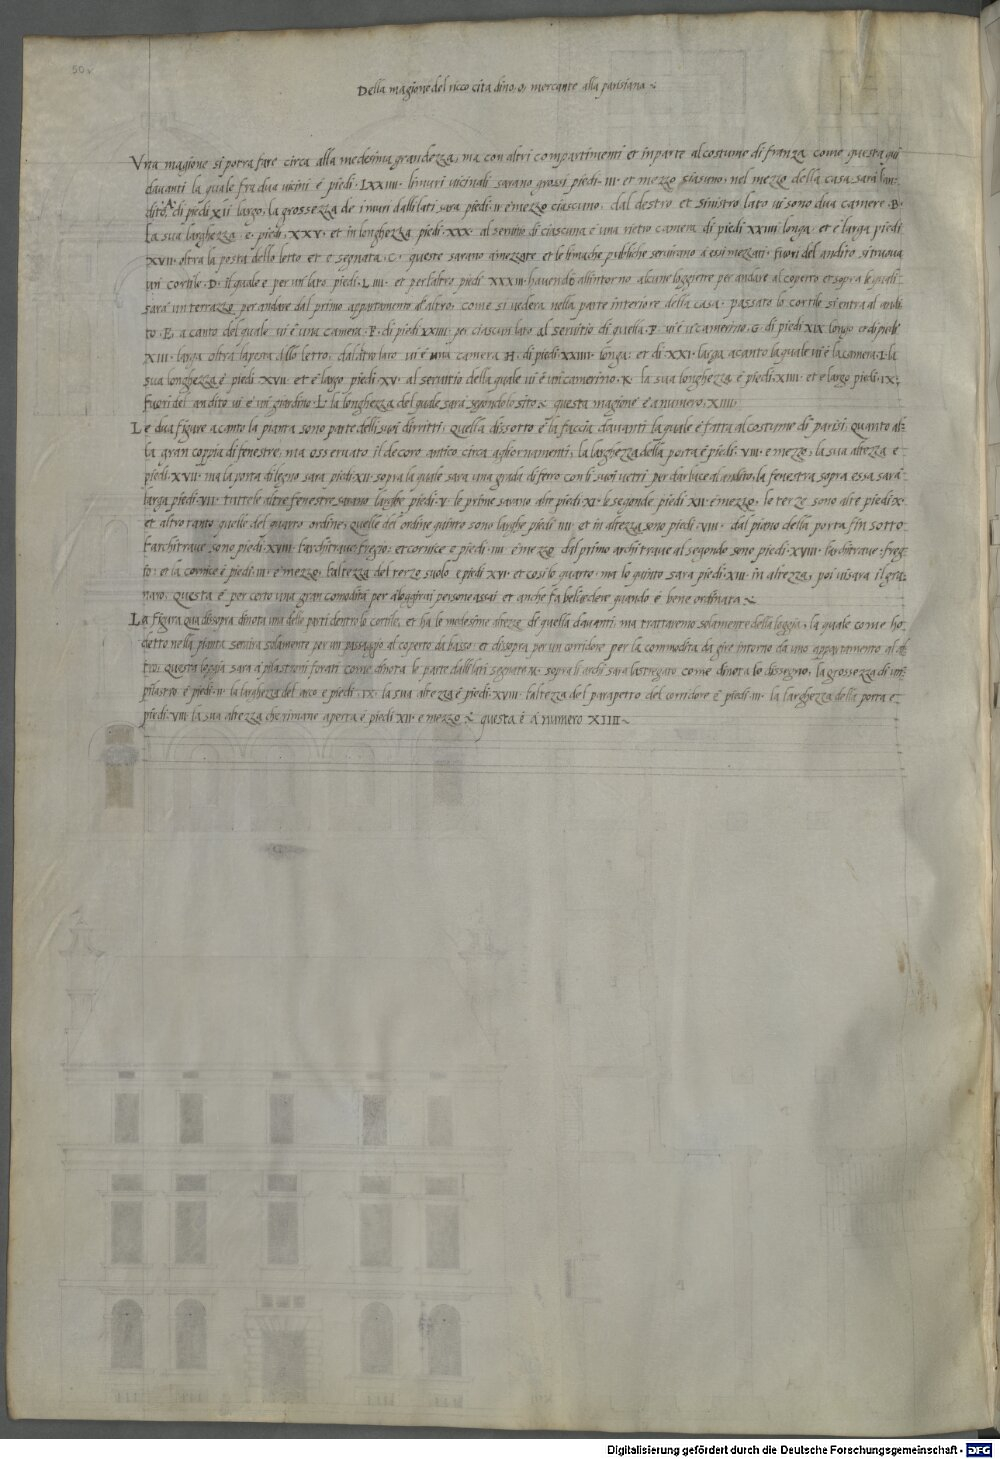 50v
Della magione del ricco citadino, o, mercante alla parisiana
Vna magione si potra fare circa alla medesima grandezza, ma con altri compartimenti et in parte al costume di franza come questa qui
davanti la quale fra dua vicini è piedi · LXXIIII · li muri vicinali sarano grossi piedi · III · et mezzo ciascuno, nel mezzo della casa sarà l'an-
dito, A · di piedi XII largo, la grossezza de i muri dalli lati sara piedi · II · e mezzo ciascuno, dal destro et sinistro lato vi sono dua camere · B ·
la sua larghezza e · piedi · XXV · et in longhezza piedi · XXX · al servitio di ciascuna è una rietro camera di piedi XXIIII longa, et è larga piedi
XVII · oltra la posta dello letto et e segnata · C · queste sarano amezzate et le limache publiche servirano a essi mezzati · fuori del andito si truova
un cortile · D · il quale e per un lato piedi · LIII · et per l'altro piedi XXXIII · havendo all'intorno alcune loggiette per andare al coperto et sopra le quali
sara un terrazzo per andare dal primo appartamento a l'altro, come si vedera nella parte interiore della casa · passato lo cortile si entra al andi-
to · E, a canto del quale vi è una camera · F · di piedi XXIII · per ciascun lato al servitio di quella · F · vi è un camerino, G · di piedi XIX longo et di piedi
XIII · larga oltra la posta dello letto, dal altro lato vi è una camera H · di piedi XXIIII · longa · et di · XXI · larga a canto la quale vi è la camera · I · la
sua longhezza è piedi · XVII · et è largo piedi · XV · al servitio della quale vi è un camerino · K · la sua longhezza è piedi · XIIII · et e largo piedi · IX ·
fuori del andito vi è un giardino · L · la longhezza del quale sara segondo lo sito · questa magione è a numero · XIIII ·
Le dua figure a canto la pianta sono parte delli suoi dirritti, quella dissotto è la faccia davanti la quale è fatta al costume di parisi, quanto al-
la gran coppia di fenestre, ma osservato il decoro antico circa agliornamenti, la larghezza della porta è piedi · VIII · e mezzo, la sua altezza e
piedi · XVII · ma la porta di legno sara piedi · XII · sopra la quale sara una grada di ferro con li suoi vetri per dar luce al andito, la fenestra sopra essa sarà
larga piedi · VII · tutte le altre fenestre sarano larghe piedi · V · le prime sarano alte piedi · XI · le segonde piedi XII · e mezzo, le terze sono alte piedi · X ·
et altro tanto quelle del quarto ordine, quelle del ordine quinto sono larghe piedi IIII · et in altezza sono piedi · VIII · dal piano della porta fin sotto
l'architrave sono piedi · XVIII · l'architrave fregio, et cornice e piedi · IIII · e mezzo dal primo architrave al segondo sono piedi · XVIII · l'architrave · freg-
io · et la cornice è piedi · III · e mezzo, l'altezza del terzo suolo e piedi · XVI · et cosi lo quarto · ma lo quinto sara piedi · XIII · in altezza, poi vi sara il gra-
naro, questa è per certo una gran comodita per alloggiarui persone assai et anche fa bel vedere quando è bene ordinata
La figura qua dissopra dinota una delle parti dentro lo cortile, et ha le medesime altezze di quella davanti ma trattaremo solamente della loggia, la quale come ho
detto nella pianta servira solamente per un passaggio al coperto da basso · et dissopra per un corridore per la commodita da gire intorno da uno appartamento al al-
tro, questa loggia sara a pilastroni forati come dinota le parte dalli lati segnate M · sopra li archi sara lastregato come dinota lo dissegno, la grossezza di un
pilastro è piedi · II · la larghezza del arco e piedi · IX · la sua altezza è piedi · XVIII · l'altezza del parapetto del corridore è piedi · III · la larghezza della porta e
piedi · VIII · la sua altezza che rimane aperta è piedi · XII · e mezzo · questa è a numero XIIII
Digitalisierung gefördert durch die Deutsche Forschungsgemeinschaft - DFG